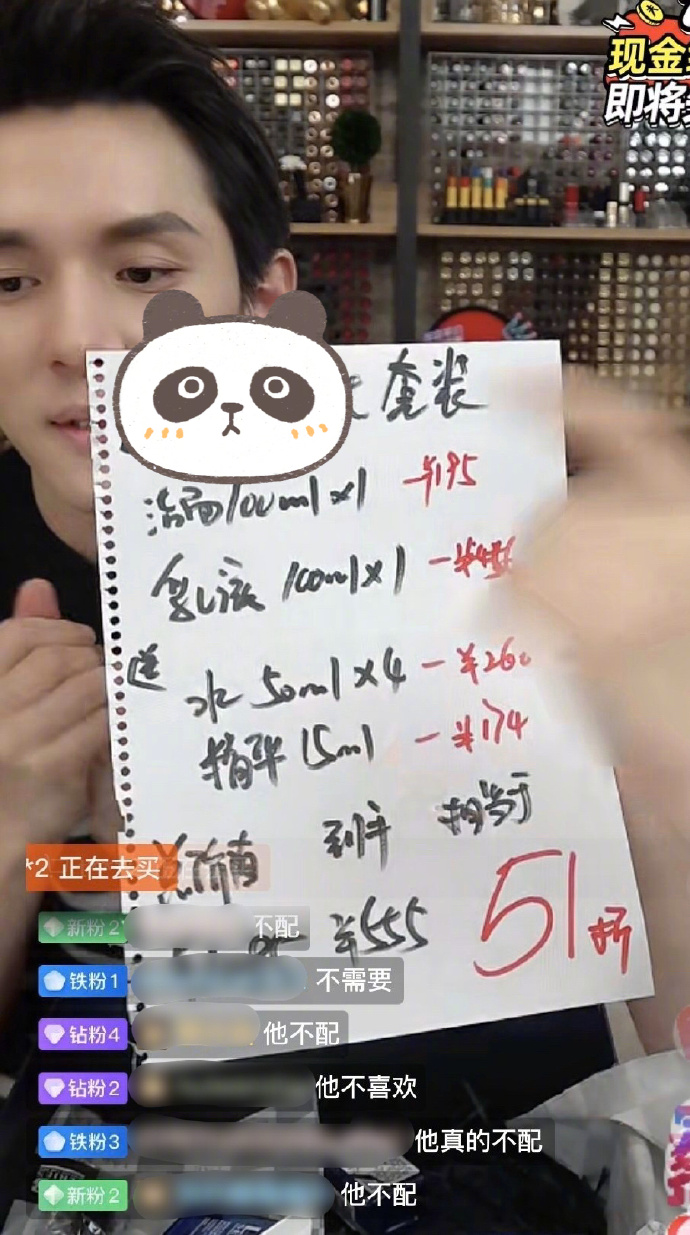 现金
即将
套装
洁面100ml×1 -¥195
乳液100ml×1
送
水50ml×4 -¥260
精华15ml -¥174
到手 相当于
¥555
51折
*2 正在去买
新粉2 不配
铁粉1 不需要
钻粉4 他不配
钻粉2 他不喜欢
铁粉3 他真的不配
新粉2 他不配